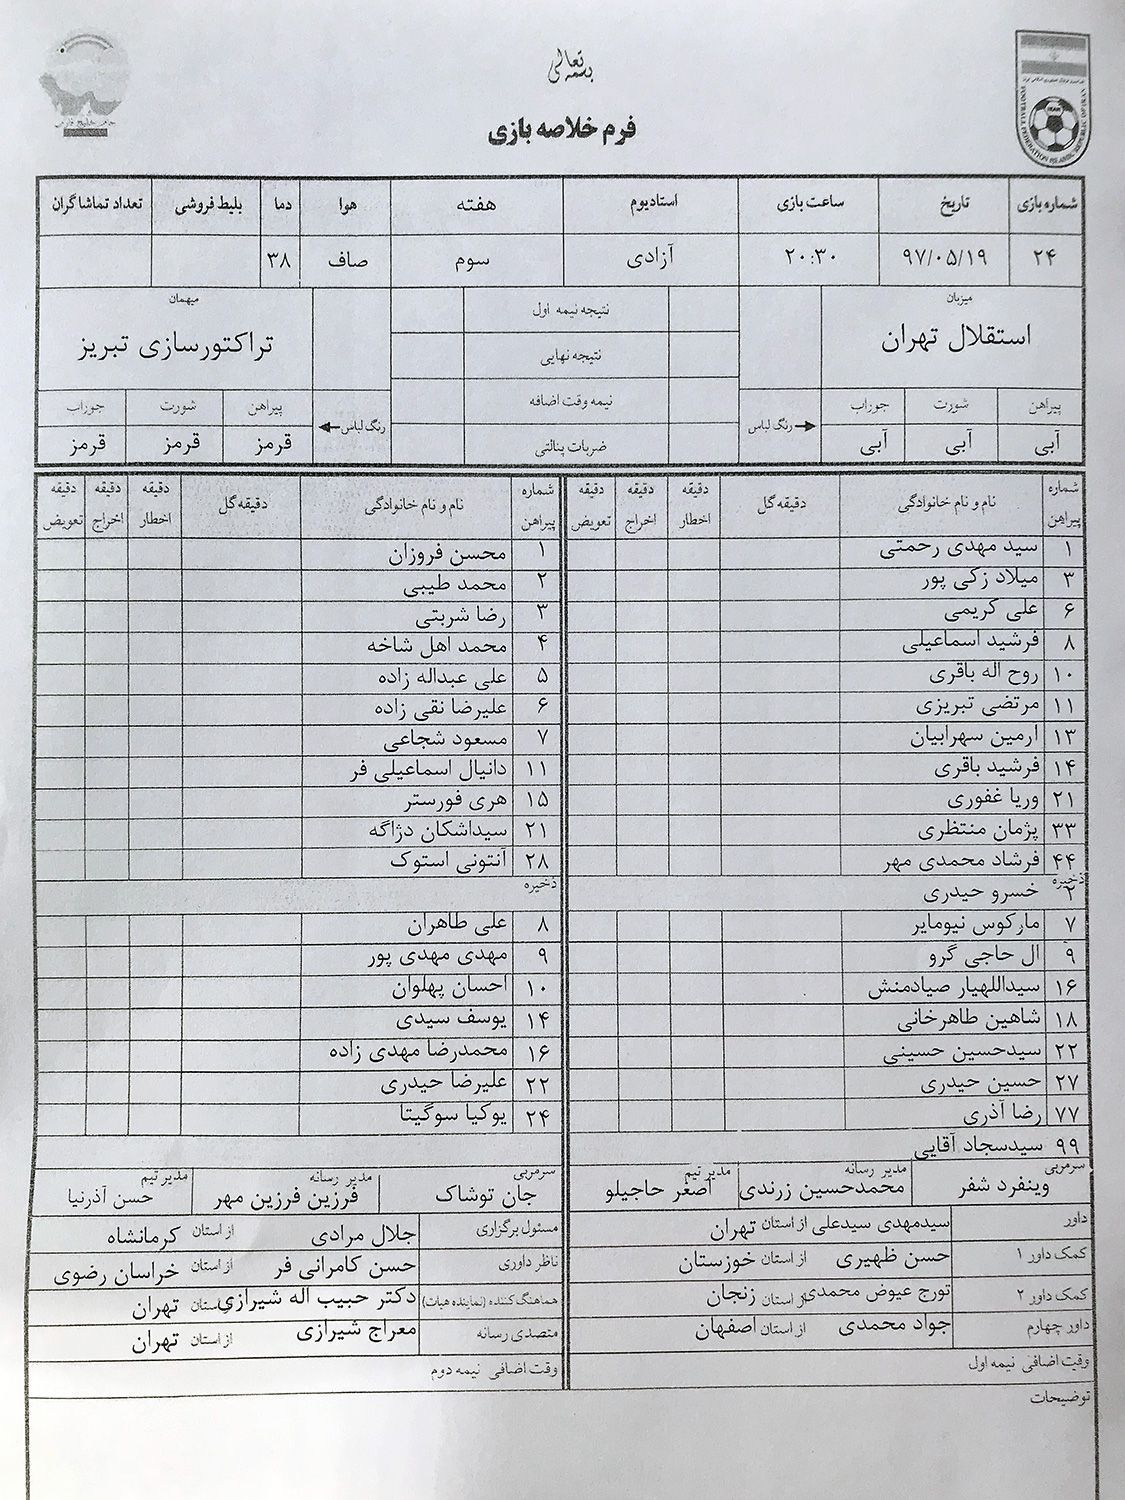 بسمه تعالی
فرم خلاصه بازی
FOOTBALL FEDERATION ISLAMIC REPUBLIC OF IRAN
شماره بازی تاریخ ساعت بازی استادیوم هفته هوا دما بلیط فروشی تعداد تماشاگران
۲۴ ۹۷/۰۵/۱۹ ۲۰:۳۰ آزادی سوم صاف ۳۸
میزبان نتیجه نیمه اول میهمان
استقلال تهران نتیجه نهایی تراکتورسازی تبریز
پیراهن شورت جوراب رنگ لباس نیمه وقت اضافه رنگ لباس پیراهن شورت جوراب
آبی آبی آبی ضربات پنالتی قرمز قرمز قرمز
شماره پیراهن نام و نام خانوادگی دقیقه گل دقیقه اخطار دقیقه اخراج دقیقه تعویض
۱ سید مهدی رحمتی
۳ میلاد زکی پور
۶ علی کریمی
۸ فرشید اسماعیلی
۱۰ روح اله باقری
۱۱ مرتضی تبریزی
۱۳ آرمین سهرابیان
۱۴ فرشید باقری
۲۱ وریا غفوری
۳۳ پژمان منتظری
۴۴ فرشاد محمدی مهر
ذخیره
۲ خسرو حیدری
۷ مارکوس نیومایر
۹ ال حاجی گرو
۱۶ سیداللهیار صیادمنش
۱۸ شاهین طاهرخانی
۲۲ سیدحسین حسینی
۲۷ حسین حیدری
۷۷ رضا آذری
۹۹ سیدسجاد آقایی
سرمربی وینفرد شفر مدیر رسانه محمدحسین زرندی مدیر تیم اصغر حاجیلو
داور سیدمهدی سیدعلی از استان تهران
کمک داور ۱ حسن ظهیری از استان خوزستان
کمک داور ۲ تورج عیوض محمدی از استان زنجان
داور چهارم جواد محمدی از استان اصفهان
وقت اضافی نیمه اول
توضیحات
شماره پیراهن نام و نام خانوادگی دقیقه گل دقیقه اخطار دقیقه اخراج دقیقه تعویض
۱ محسن فروزان
۲ محمد طیبی
۳ رضا شربتی
۴ محمد اهل شاخه
۵ علی عبداله زاده
۶ علیرضا نقی زاده
۷ مسعود شجاعی
۱۱ دانیال اسماعیلی فر
۱۵ هری فورستر
۲۱ سیداشکان دژاگه
۲۸ آنتونی استوک
ذخیره
۸ علی طاهران
۹ مهدی مهدی پور
۱۰ احسان پهلوان
۱۴ یوسف سیدی
۱۶ محمدرضا مهدی زاده
۲۲ علیرضا حیدری
۲۴ یوکیا سوگیتا
سرمربی جان توشاک مدیر رسانه فرزین فرزین مهر مدیر تیم حسن آذرنیا
مسئول برگزاری جلال مرادی از استان کرمانشاه
ناظر داوری حسن کامرانی فر از استان خراسان رضوی
هماهنگ کننده (نماینده هیات) دکتر حبیب اله شیرازی از استان تهران
متصدی رسانه معراج شیرازی از استان تهران
وقت اضافی نیمه دوم